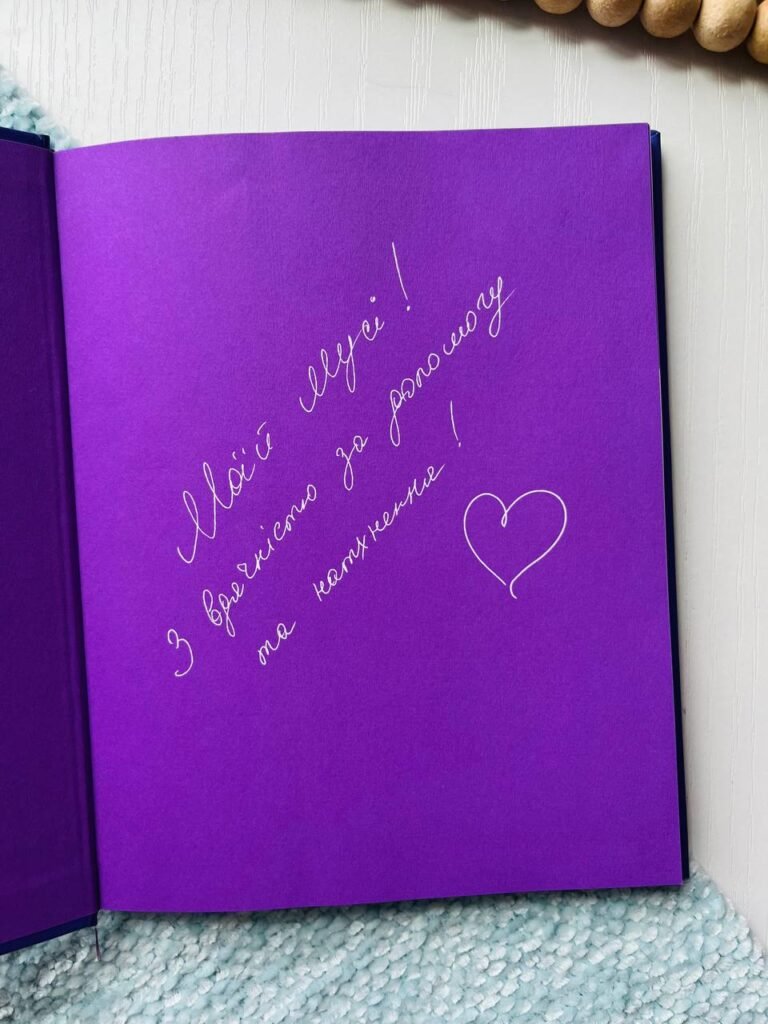 Моїй Мусі!
З вдячністю за допомогу
та натхнення!